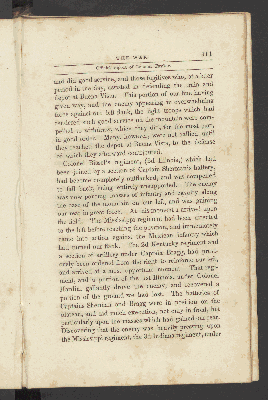 THE WAR. 111
Official report of General Taylor.
and did good service, and those fugitives who, at a later
period in the day, assisted in defending the train and
depot at Buena Vista. This portion of our line having
given way, and the enemy appearing in overwhelming
force against our left flank, the light troops which had
rendered such good service on the mountain were com-
pelled to withdraw, which they did, for the most part,
in good order. Many, however, were not rallied until
they reached the depot at Buena Vista, to the defence
of which they afterward contributed.
Colonel Bissel's regiment, (2d Illinois,) which had
been joined by a section of Captain Sherman's battery,
had become completely outflanked, and was compelled
to fall back, being entirely unsupported. The enemy
was now pouring masses of infantry and cavalry along
the base of the mountain on our left, and was gaining
our rear in great force. At this moment I arrived upon
the field. The Mississippi regiment had been directed
to the left before reaching the position, and immediately
came into action against the Mexican infantry which
had turned our flank. The 2d Kentucky regiment and
a section of artillery under Captain Bragg, had previ-
ously been ordered from the right to reinforce our left,
and arrived at a most opportune moment. That regi-
ment, and a portion of the 1st Illinois, under Colonel
Hardin, gallantly drove the enemy, and recovered a
portion of the ground we had lost. The batteries of
Captains Sherman and Bragg were in position on the
plateau, and did much execution, not only in front, but
particularly upon the masses which had gained our rear.
Discovering that the enemy was heavily pressing upon
the Mississippi regiment, the 3d Indiana regiment, under